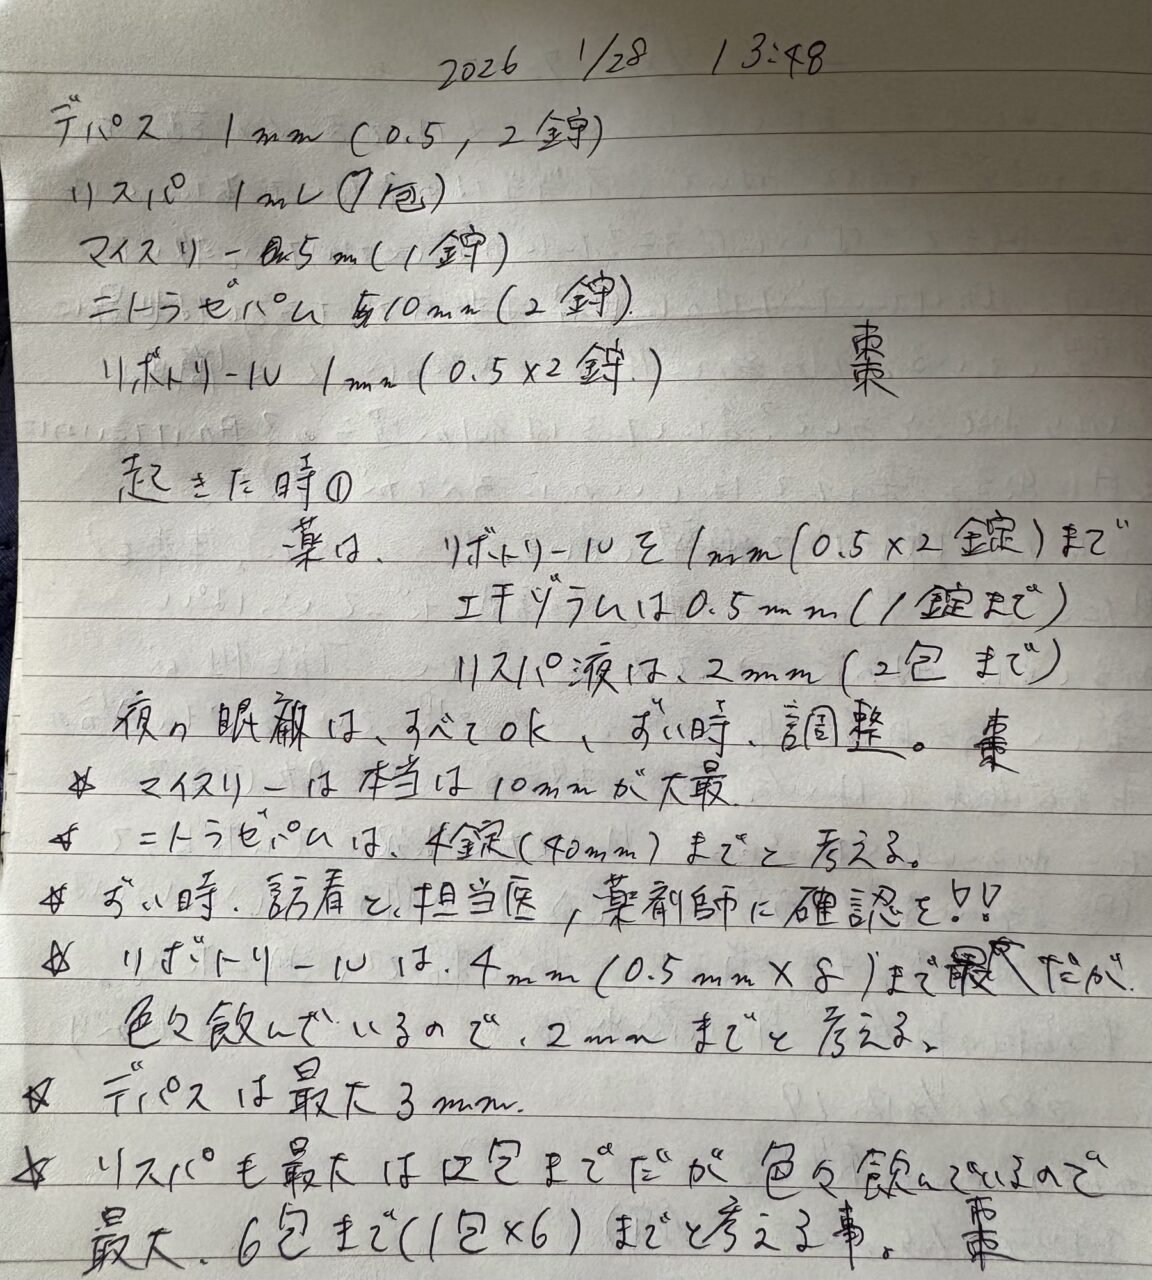 2026 1/28 13:48
デパス 1mm (0.5, 2錠)
リスパ 1mL (1包)
マイスリー 5m (1錠)
ニトラゼパム 10mm (2錠)
リボトリール 1mm (0.5×2錠.)
棗
起きた時①
薬は、リボトリールを1mm(0.5×2錠)まで
エチゾラムは0.5mm(1錠まで)
リスパ液は、2mm(2包まで)
夜の眠剤は、すべてOK、ずい時、調整。 棗
☆ マイスリーは本当は10mmが大最
☆ ニトラゼパムは、4錠(40mm)までと考える。
☆ ずい時、訪看と、担当医,薬剤師に確認を!!
☆ リボトリールは、4mm(0.5mm×8)までだが、
色々飲んでいるので、2mmまでと考える、
☆ デパスは最大3mm.
☆ リスパも最大は12包までだが、色々飲んでいるので
最大、6包まで(1包×6)までと考える事。 棗